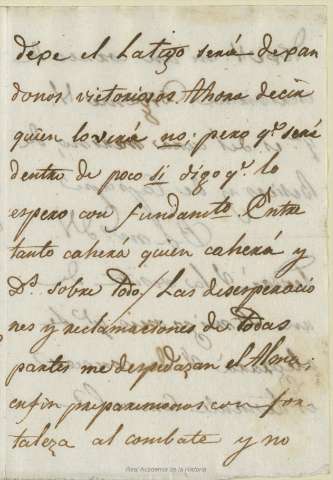 dexe el Latigo será dexan
donos victoriosos. Ahora decir
quien lo verá no: pero qᵉ será
dentro de poco si digo qᵉ lo
espero con fundamto. Entre
tanto caherá quien caherá y
Ds. sobre todo/ Las desesperacio
nes y reclamaciones de todas
partes me despedazan el Alma:
enfin preparemonos con for-
taleza al combate y no
Real Academia de la Historia